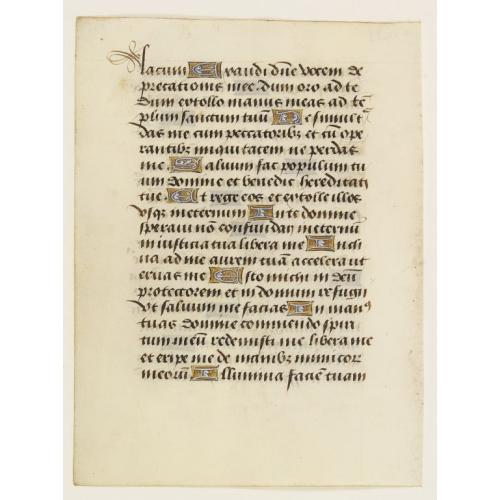 lacum E xaudi dñe vocem de
precationis mee. dum oro ad te
dum extollo manus meas ad tē
plum sanctum tuū N e simul t
das me cum peccatoribȝ et cū ope
rantibȝ iniquitatem ne perdas
me. S aluum fac populum tu
um domine et benedic hereditati
tue. E t rege eos et extolle illos
vsqȝ in eternum I n te domine
speraui nō confundar in eternū
in iusticia tua libera me I ncli
na ad me aurem tuā accelera ut
eruas me E sto michi in deū
protectorem et in domum refugii
vt saluum me facias I n manꝰ
tuas domine commendo spiri
tum meū redemisti me libera me
et eripe me de manibȝ inimicorꝝ
meorū I llumina faciē tuam